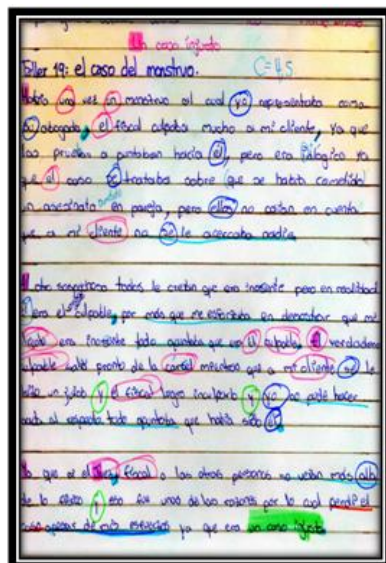 Un caso injusto
Taller 19: el caso del monstruo. C=4.5
Había una vez un monstruo al cual yo representaba como
su abogado, el fiscal culpaba mucho a mi cliente, ya que
las pruebas a puntaban hacía él, pero era ilogico ya
que el caso se trataba sobre que se había cometido
un asesinato en pareja, pero ellos no caían en cuenta
que a mi cliente no se le acercaba nadie.
otro sospechoso todos le creían que era inosente pero en realidad
era el culpable, por más que me esforzaba en demostrar que mi
era inosente todo apuntaba que era el culpable, El verdadero
culpable salió pronto de la carcel mientras que a mi cliente se le
hizo un juicio y el fiscal logro inculparlo y yo no pude hacer
nada al respecto todo apuntaba que había sido él,
Ya que ni el fiscal o las otras personas no veían más alla
de lo y eso fue unas de las razones por lo cual perdí el
caso apesar de mis esfuerzos ya que era un caso injusto